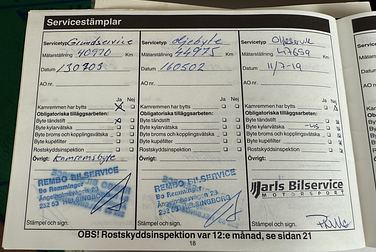 Servicestämplar
Servicetyp Grundservice
Mätarställning 40970 Km
Datum 130209
AO nr.
Ja Nej
Kamremmen har bytts
Obligatoriska tilläggsarbeten:
Byte tändstift
Byte kylarvätska
Byte broms och kopplingsvätska
Byte kupéfilter
Rostskyddsinspektion
Övrigt: Kamremsbyte
REMBO BILSERVICE
Bo Remminger
HELSINGBORG
Stämpel och sign.
Servicetyp oljebyte
Mätarställning 44975 Km
Datum 160502
AO nr.
Ja Nej
Kamremmen har bytts
Obligatoriska tilläggsarbeten:
Byte tändstift
Byte kylarvätska
Byte broms och kopplingsvätska
Byte kupéfilter
Rostskyddsinspektion
Övrig:
REMBO BILSERVICE
Bo Remminger
HELSINGBORG
Stämpel och sign.
Servicetyp
Mätarställning 47659 Km
Datum 11/7-19
AO nr.
Ja Nej
Kamremmen har bytts
Obligatoriska tilläggsarbeten:
Byte tändstift
Byte kylarvätska
Byte broms och kopplingsvätska
Byte kupéfilter
Rostskyddsinspektion
Övrig:
Jarls Bilservice
MOTORSPORT
Stämpel och sign.
OBS! Rostskyddsinspektion var 12:e månad, se sidan 21
18